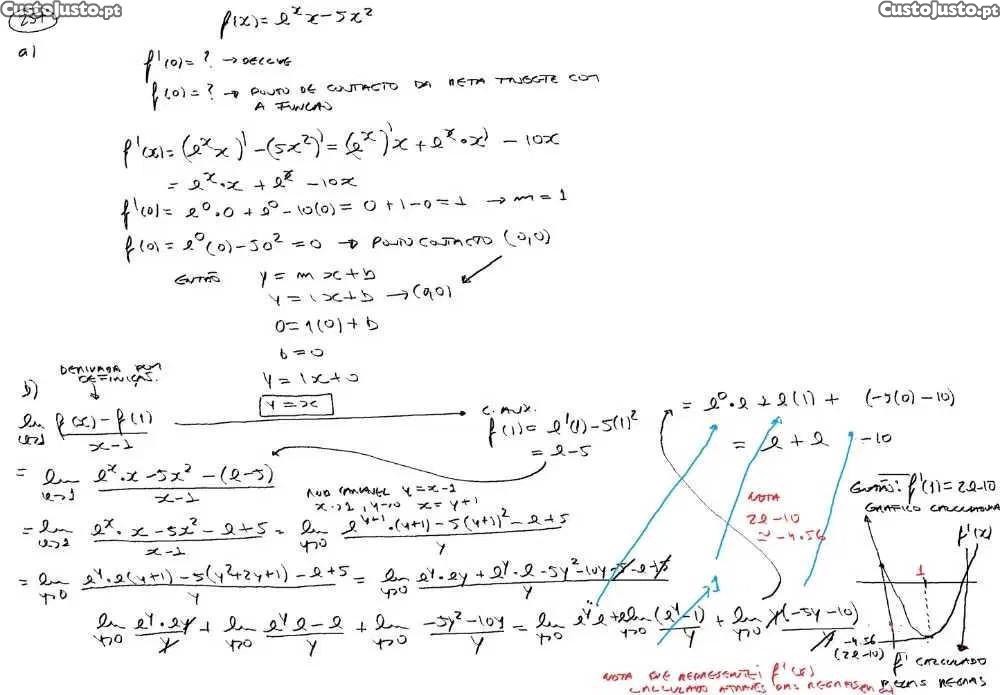 CustoJusto.pt
CustoJusto.pt
f(x) = e^x x - 5x^2
a)
f'(0) = ? → DECLIVE
f(0) = ? → PONTO DE CONTACTO DA RETA TANGENTE COM
A FUNÇÃO
f'(x) = (e^x x)' - (5x^2)' = (e^x)' x + e^x · x' - 10x
= e^x · x + e^x - 10x
f'(0) = e^0 · 0 + e^0 - 10(0) = 0 + 1 - 0 = 1 → m = 1
f(0) = e^0 (0) - 5 0^2 = 0 → PONTO CONTACTO (0,0)
ENTÃO y = m x + b
y = 1x + b → (0,0)
0 = 1(0) + b
b = 0
y = 1x + 0
y = x
b) DERIVADA POR
DEFINIÇÃO.
lim x→1 (f(x) - f(1))/(x - 1)
C. AUX.
f(1) = e^1(1) - 5(1)^2
= e - 5
= lim x→1 (e^x · x - 5x^2 - (e - 5))/(x - 1)
y = x - 1
x→1, y→0 x = y + 1
= lim x→1 (e^x · x - 5x^2 - e + 5)/(x - 1) = lim y→0 (e^(y+1) · (y+1) - 5(y+1)^2 - e + 5)/y
= lim y→0 (e^y · e(y+1) - 5(y^2 + 2y + 1) - e + 5)/y = lim y→0 (e^y · ey + e^y · e - 5y^2 - 10y - 5 - e + 5)/y
lim y→0 (e^y · ey)/y + lim y→0 (e^y e - e)/y + lim y→0 (-5y^2 - 10y)/y = lim y→0 e^y e + e lim y→0 (e^y - 1)/y + lim y→0 y(-5y - 10)/y
1
= e^0 · e + e(1) + (-5(0) - 10)
= e + e - 10
ENTÃO: f'(1) = 2e - 10
NOTA
2e - 10
≃ -4.56
GRÁFICO CALCULADORA
f'(x)
1
-4.56
(2e - 10)
f' CALCULADO
PELAS REGRAS
NOTA QUE REPRESENTEI f'(x)
CALCULADO ATRAVÉS DAS REGRAS